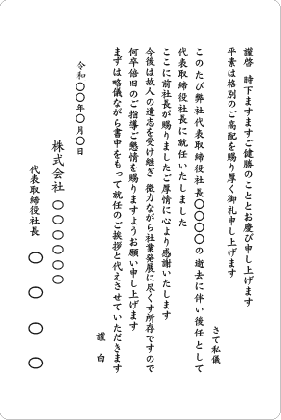 謹啓 時下ますますご健勝のこととお慶び申し上げます
平素は格別のご高配を賜り厚く御礼申し上げます
さて私儀
このたび弊社代表取締役社長〇〇〇〇の逝去に伴い後任として
代表取締役社長に就任いたしました
ここに前社長が賜りましたご厚情に心より感謝いたします
今後は故人の遺志を受け継ぎ 微力ながら社業発展に尽くす所存ですので
何卒倍旧のご指導ご懇情を賜りますようお願い申し上げます
まずは略儀ながら書中をもって就任のご挨拶と代えさせていただきます
謹白
令和〇〇年〇月〇日
株式会社 〇〇〇〇〇〇
代表取締役社長 〇〇〇〇